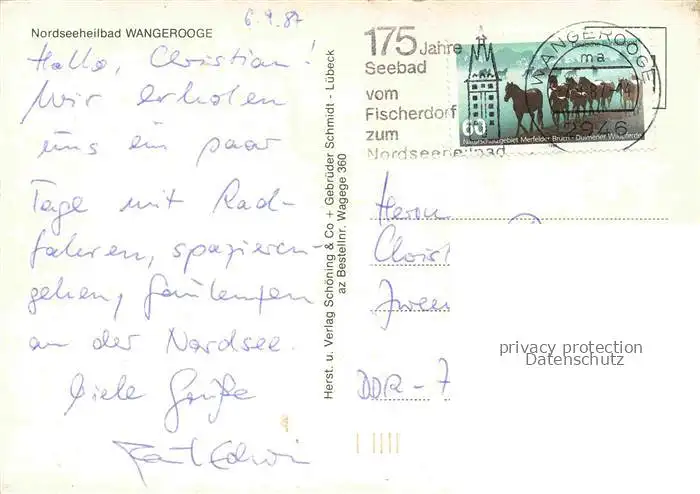 Nordseeheilbad WANGEROOGE
6.9.87
Hallo, Christian!
Wir erholen
uns ein paar
Tage mit Rad-
fahren, spazieren-
gehen, faulenzen
an der Nordsee.
Viele Grüße
Herst. u. Verlag Schöning & Co + Gebrüder Schmidt - Lübeck
az Bestellnr. Wagege 360
175 Jahre
Seebad
vom
Fischerdorf
zum
Nordseeheilbad
WANGEROOGE
ma
2946
Deutsche
60
Naturschutzgebiet Merfelder Bruch - Dülmener Wildpferde
Herrn
Christ
DDR - 7
privacy protection
Datenschutz